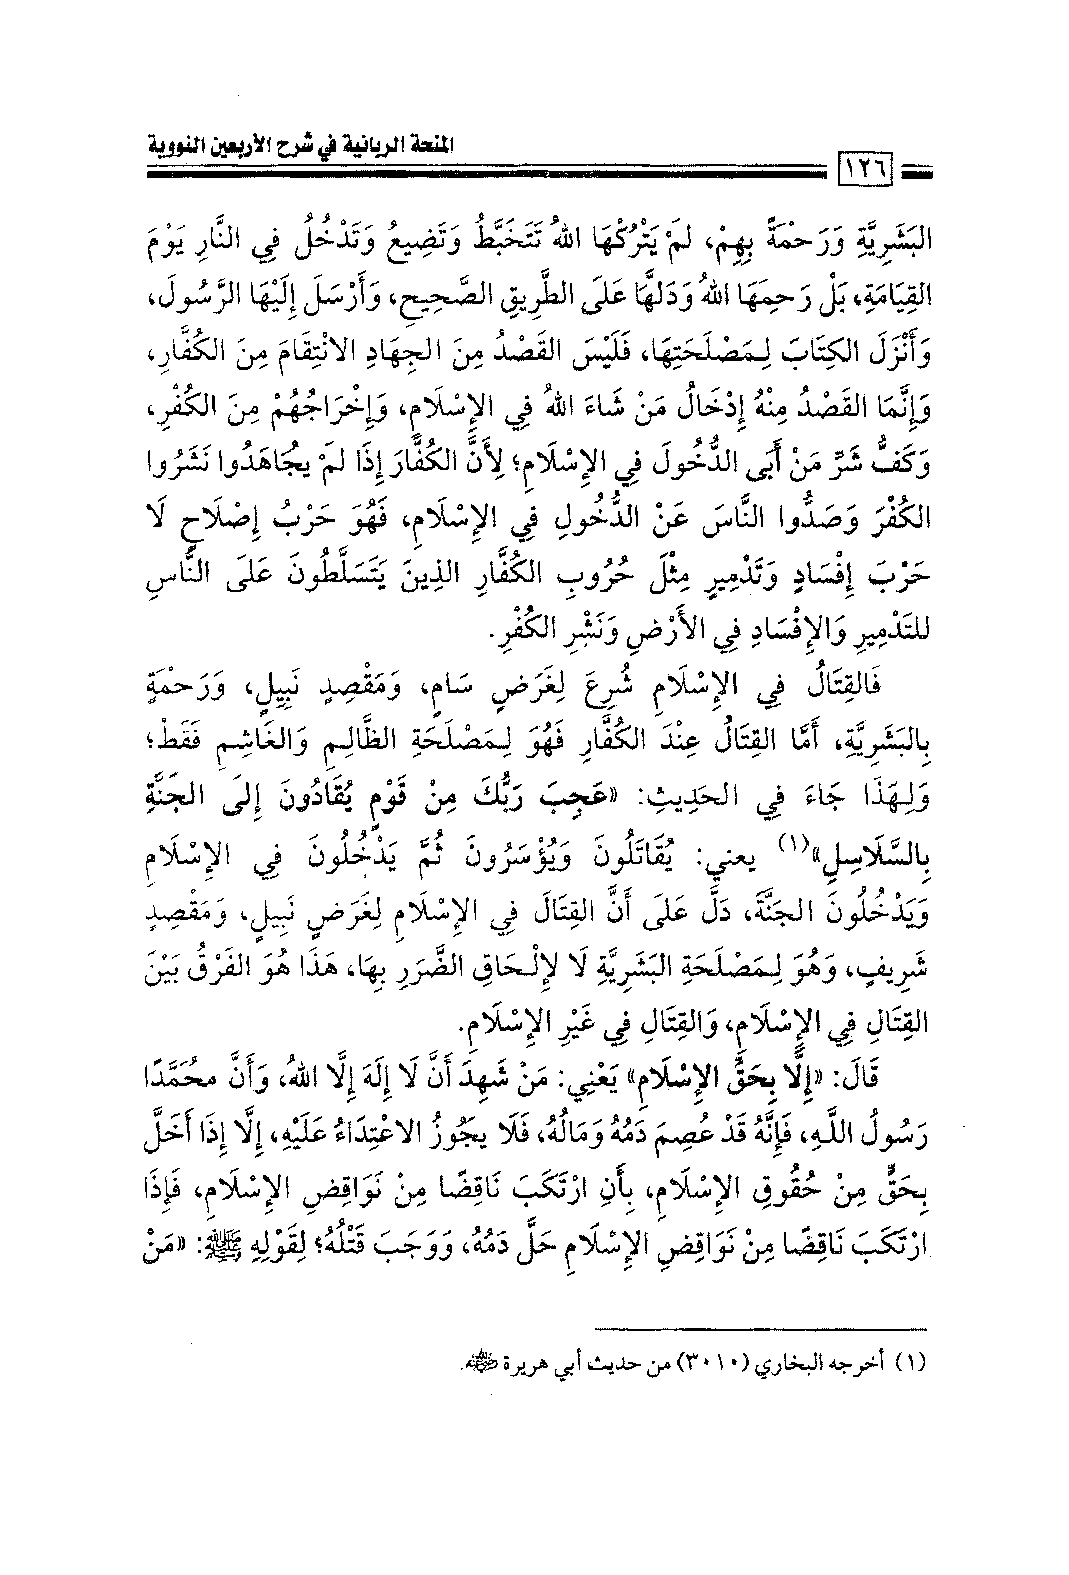 المنحة الربانية في شرح الأربعين النووية
١٢٦
البَشَرِيَّةِ وَرَحْمَةً بِهِمْ، لَمْ يَتْرُكْهَا اللهُ تَتَخَبَّطُ وَتَضِيعُ وَتَدْخُلُ فِي النَّارِ يَوْمَ
القِيَامَةِ، بَلْ رَحِمَهَا اللهُ وَدَلَّهَا عَلَى الطَّرِيقِ الصَّحِيحِ، وَأَرْسَلَ إِلَيْهَا الرَّسُولَ،
وَأَنْزَلَ الكِتَابَ لِمَصْلَحَتِهَا، فَلَيْسَ القَصْدُ مِنَ الجِهَادِ الانْتِقَامَ مِنَ الكُفَّارِ،
وَإِنَّمَا القَصْدُ مِنْهُ إِدْخَالُ مَنْ شَاءَ اللهُ فِي الإِسْلَامِ، وَإِخْرَاجُهُمْ مِنَ الكُفْرِ،
وَكَفُّ شَرِّ مَنْ أَبَى الدُّخُولَ فِي الإِسْلَامِ؛ لِأَنَّ الكُفَّارَ إِذَا لَمْ يُجَاهَدُوا نَشَرُوا
الكُفْرَ وَصَدُّوا النَّاسَ عَنْ الدُّخُولِ فِي الإِسْلَامِ، فَهُوَ حَرْبُ إِصْلَاحٍ لَا
حَرْبَ إِفْسَادٍ وَتَدْمِيرٍ مِثْلَ حُرُوبِ الكُفَّارِ الذِينَ يَتَسَلَّطُونَ عَلَى النَّاسِ
لِلتَدْمِيرِ وَالإِفْسَادِ فِي الأَرْضِ وَنَشْرِ الكُفْرِ.
فَالقِتَالُ فِي الإِسْلَامِ شُرِعَ لِغَرَضٍ سَامٍ، وَمَقْصِدٍ نَبِيلٍ، وَرَحْمَةٍ
بِالبَشَرِيَّةِ، أَمَّا القِتَالُ عِنْدَ الكُفَّارِ فَهُوَ لِمَصْلَحَةِ الظَّالِمِ وَالغَاشِمِ فَقَطْ؛
وَلِهَذَا جَاءَ فِي الحَدِيثِ: «عَجِبَ رَبُّكَ مِنْ قَوْمٍ يُقَادُونَ إِلَى الجَنَّةِ
بِالسَّلَاسِلِ»(١) يعني: يُقَاتَلُونَ وَيُؤْسَرُونَ ثُمَّ يَدْخُلُونَ فِي الإِسْلَامِ
وَيَدْخُلُونَ الجَنَّةَ، دَلَّ عَلَى أَنَّ القِتَالَ فِي الإِسْلَامِ لِغَرَضٍ نَبِيلٍ، وَمَقْصِدٍ
شَرِيفٍ، وَهُوَ لِمَصْلَحَةِ البَشَرِيَّةِ لَا لِإِلْحَاقِ الضَّرَرِ بِهَا، هَذَا هُوَ الفَرْقُ بَيْنَ
القِتَالِ فِي الإِسْلَامِ، وَالقِتَالِ فِي غَيْرِ الإِسْلَامِ.
قَالَ: «إِلَّا بِحَقِّ الإِسْلَامِ» يَعْنِي: مَنْ شَهِدَ أَنَّ لَا إِلَهَ إِلَّا اللهُ، وَأَنَّ مُحَمَّدًا
رَسُولُ اللَّهِ، فَإِنَّهُ قَدْ عُصِمَ دَمُهُ وَمَالُهُ، فَلَا يَجُوزُ الاعْتِدَاءُ عَلَيْهِ، إِلَّا إِذَا أَخَلَّ
بِحَقٍّ مِنْ حُقُوقِ الإِسْلَامِ، بِأَنِ ارْتَكَبَ نَاقِضًا مِنْ نَوَاقِضِ الإِسْلَامِ، فَإِذَا
ارْتَكَبَ نَاقِضًا مِنْ نَوَاقِضِ الإِسْلَامِ حَلَّ دَمُهُ، وَوَجَبَ قَتْلُهُ؛ لِقَوْلِهِ ﷺ: «مَنْ
(١) أخرجه البخاري (٣٠١٠) من حديث أبي هريرة ﵁.